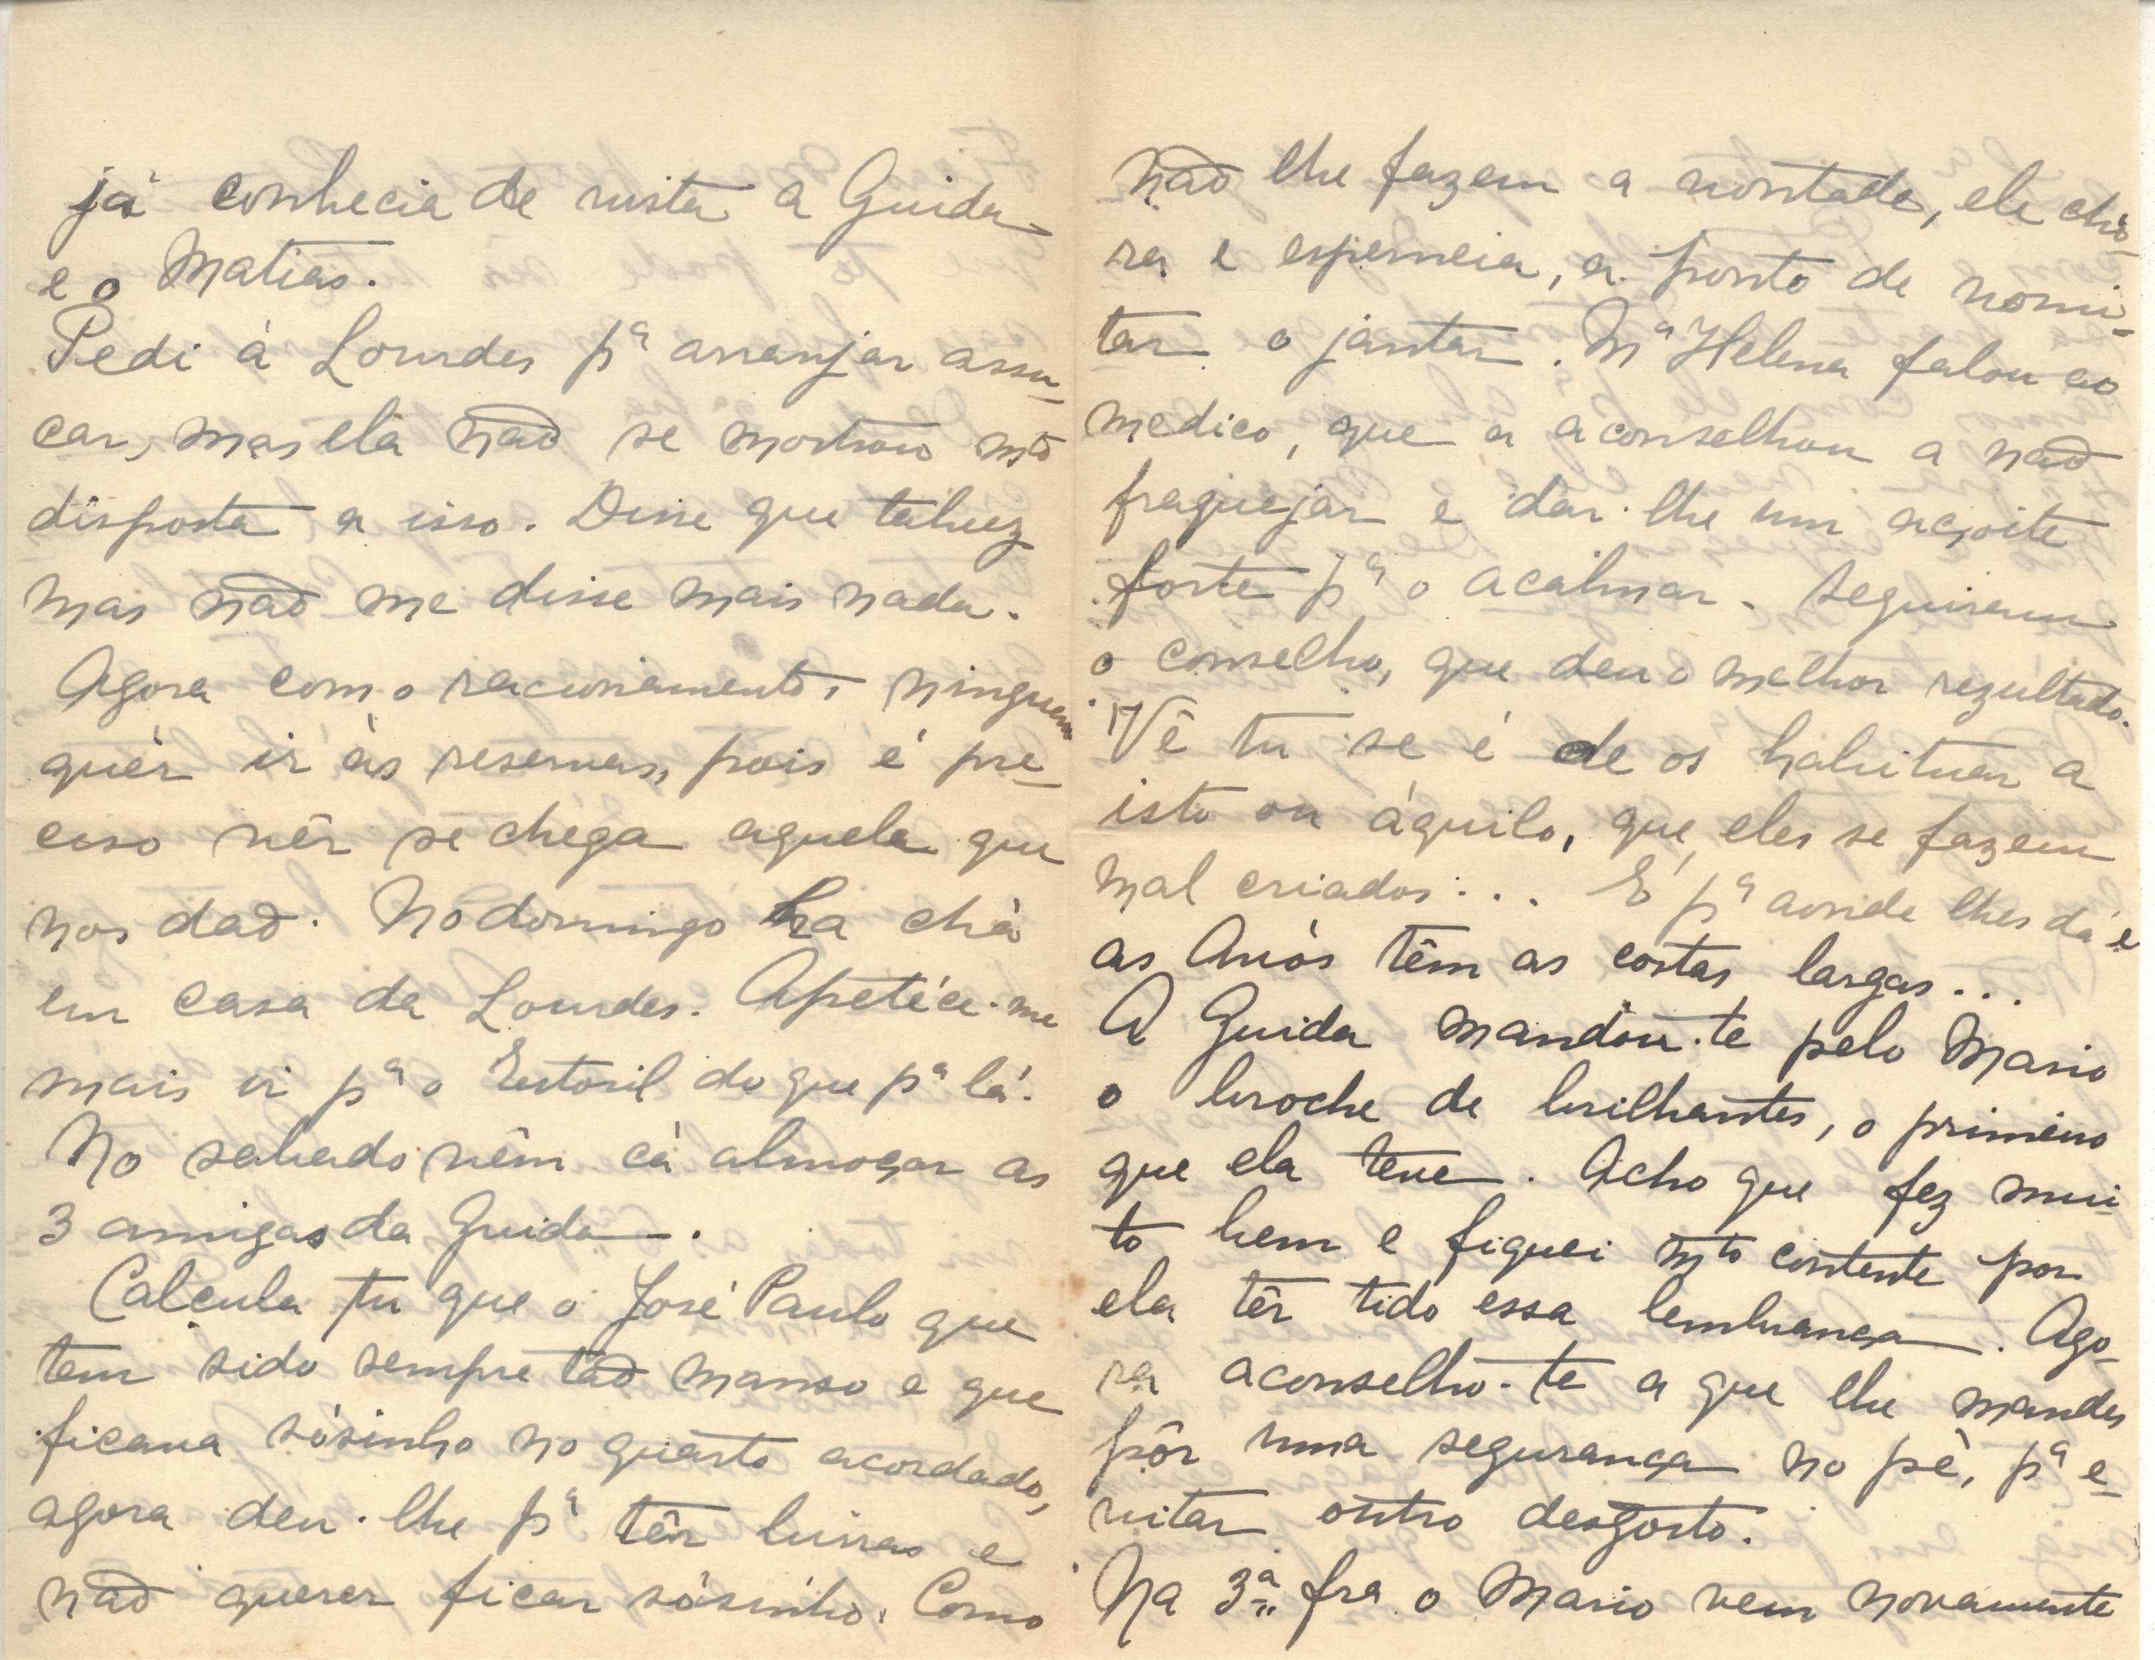 já conhecia de vista a Guida
e o Matias.
Pedi á Lourdes pª arranjar assu-
car, mas ela não se mostrou mtº
disposta a isso. Disse que talvez
mas não me disse mais nada.
Agora com o racionamento, ninguem
quér ir ás reservas, pois é pre-
ciso vêr se chega aquele que
nos dão. No domingo ha chá
em casa da Lourdes. Apetéce-me
mais ir pª o Estoril do que pª lá.
No sabado vêm cá almoçar as
3 amigas da Guida.
Calcula tu que o José Paulo que
tem sido sempre tão manso e que
ficava sósinho no quarto acordado,
agora deu-lhe pª têr birras e
não querer ficar sósinho. Como
não lhe fazem a vontade, ele chó-
ra e esperneia, a ponto de vomi-
tar o jantar. Mª Helena falou ao
medico, que a aconselhou a não
fraquejar e dar-lhe um açoite
forte pª o acalmar. Seguiram
o conselho, que deu o melhor rezultado.
Vê tu se é de os habituar a
isto ou áquilo, que eles se fazem
mal criados... É pª aonde lhes dá e
as Avós têm as costas largas...
A Guida mandou-te pelo Mario
o broche de brilhantes, o primeiro
que ela teve. Acho que fez mui-
to bem e fiquei mto contente por
ela têr tido essa lembrança. Ago-
ra aconselho-te a que lhe mandes
pôr uma segurança no pé, pª e-
vitar outro desgosto.
Na 3ª fra o Mario vem novamente